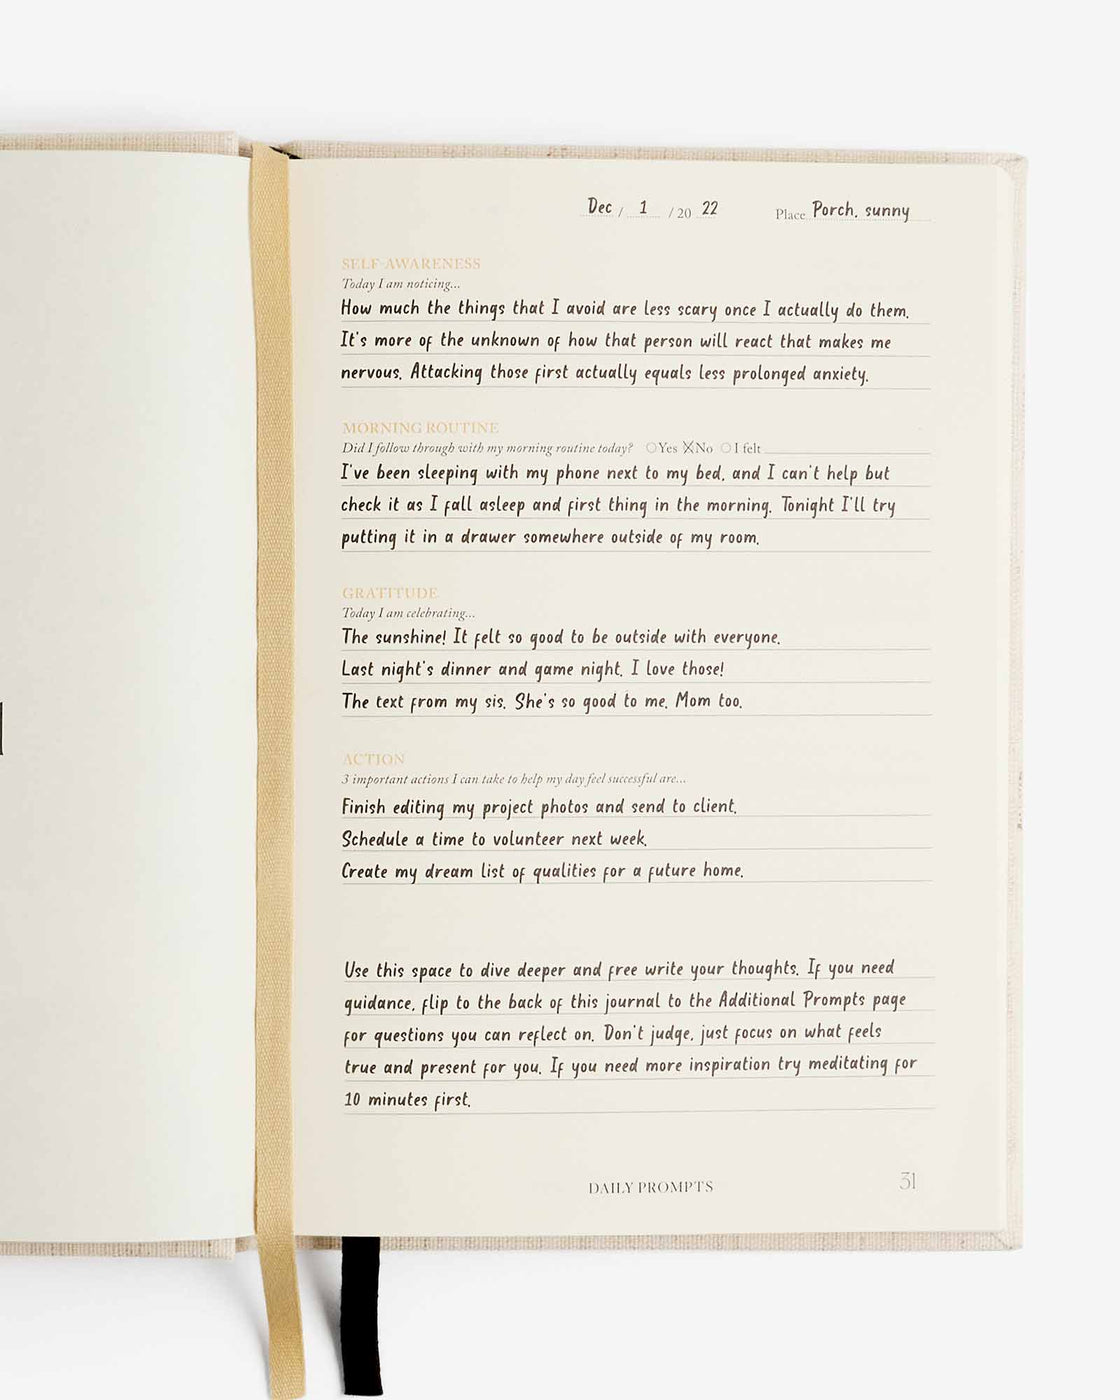 Dec / 1 / 20 22 Place Porch, sunny
SELF-AWARENESS
Today I am noticing...
How much the things that I avoid are less scary once I actually do them.
It's more of the unknown of how that person will react that makes me
nervous. Attacking those first actually equals less prolonged anxiety.
MORNING ROUTINE
Did I follow through with my morning routine today? Yes No I felt
I've been sleeping with my phone next to my bed, and I can't help but
check it as I fall asleep and first thing in the morning. Tonight I'll try
putting it in a drawer somewhere outside of my room.
GRATITUDE
Today I am celebrating...
The sunshine! It felt so good to be outside with everyone.
Last night's dinner and game night. I love those!
The text from my sis. She's so good to me. Mom too.
ACTION
3 important actions I can take to help my day feel successful are...
Finish editing my project photos and send to client.
Schedule a time to volunteer next week.
Create my dream list of qualities for a future home.
Use this space to dive deeper and free write your thoughts. If you need
guidance, flip to the back of this journal to the Additional Prompts page
for questions you can reflect on. Don't judge, just focus on what feels
true and present for you. If you need more inspiration try meditating for
10 minutes first.
DAILY PROMPTS 31